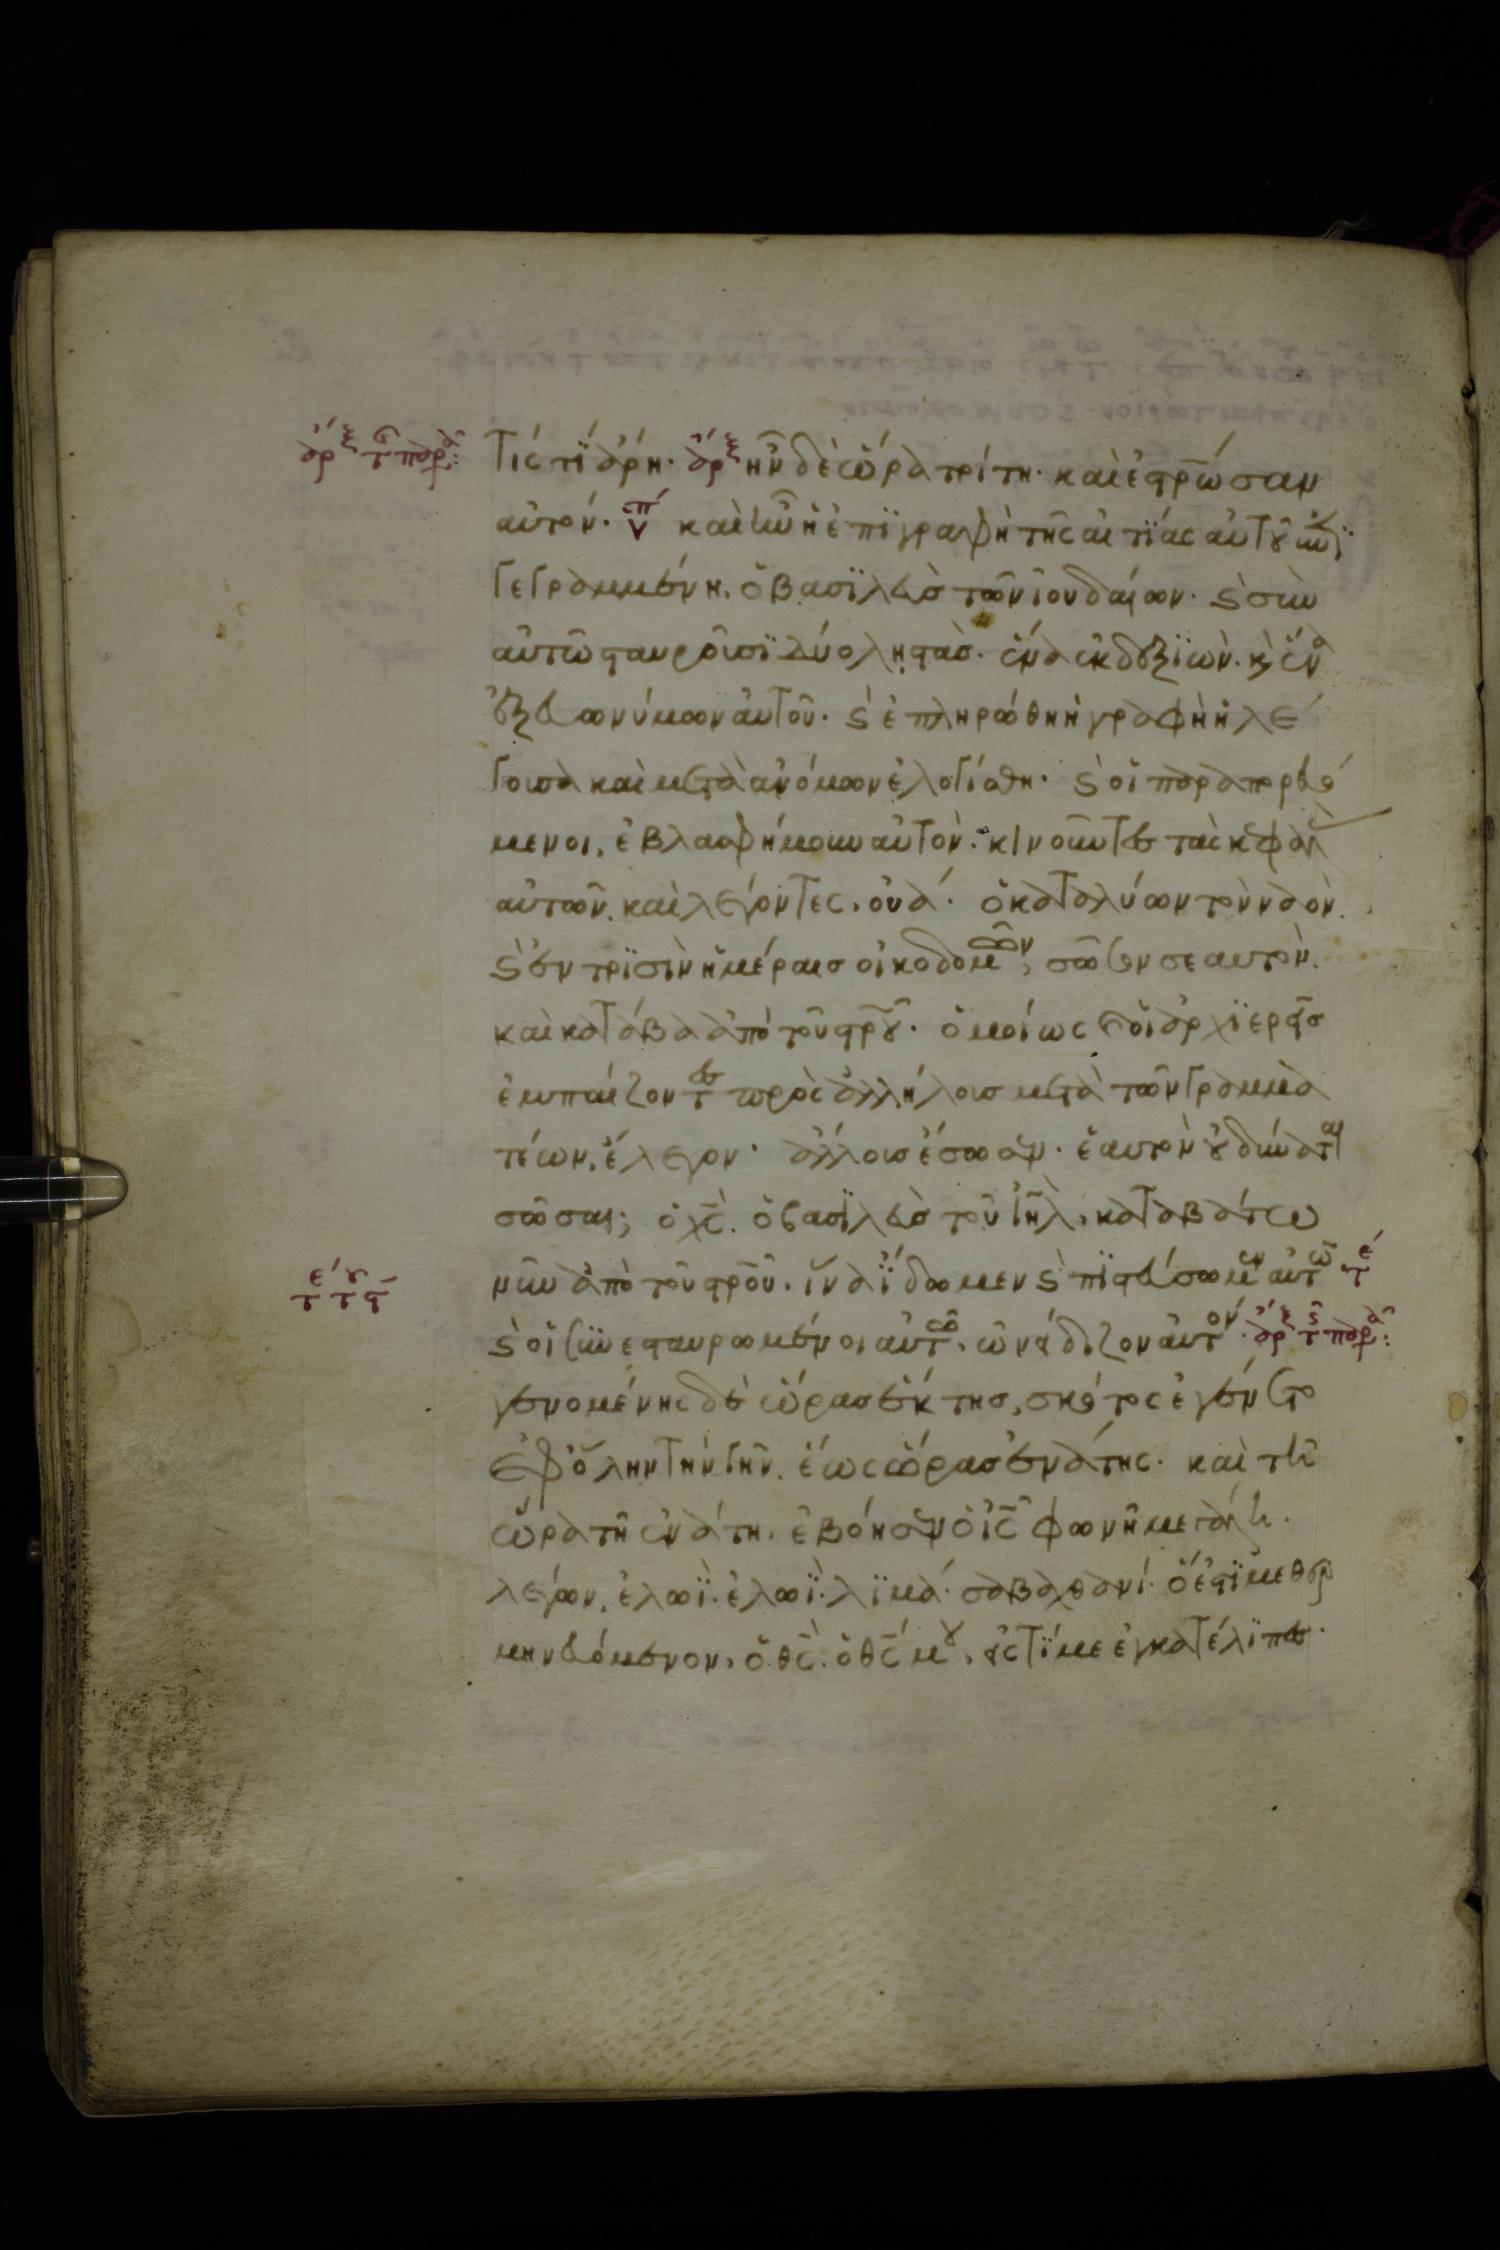 τίς τί ἄρῃ. ἀρξ ἦν δὲ ὥρα τρίτη. καὶ ἐστρωσαν
αὐτόν. καὶ ἦν ἡ ἐπϊγραφὴ τῆς αἰτϊας αὐτοῦ
γεγραμμένη, ὁ βασϊλεὺσ τῶν ϊουδαίων. ϛ σὺν
αὐτῶ σταυροῦσϊ δύο ληστὰσ. ἕνα ἐκ δεξϊων. κ ἕνα
ἐξ εὐωνύμων αὐτοῦ. ϛ ἐπληρώθη ἡ γραφὴ ἡ λέ
γουσα καὶ μετὰ ἀνόμων ἐλογίσθη. ϛ οἱ παραπορευό
μενοι, ἐβλασφήμουν αὐτὸν. κινοῦντες τὰς κεφαλ
αὐτῶν. καὶ λέγοντες, οὐά. ὁ καταλύων τὸν ναὸν.
ϛ ἐν τρϊσὶν ἡμέραισ οἰκοδομῶν, σῶσον σεαυτὸν.
καὶ κατάβα ἀπὸ τοῦ στροῦ. ὁμοίως οἱ ἀρχϊερεῖσ
ἐμπαίζοντες πρὸς ἀλλήλουσ μετὰ τῶν γραμμα
τέων, ἔλεγον. ἄλλουσ ἔσωσεν. ἑαυτὸν οὐ δύναται
σῶσαι; ὁ χς. ὁ βασϊλεὺσ τοῦ ιηλ, καταβάτω
νῦν ἀπὸ τοῦ στροῦ. ἵνα ἴδωμεν ϛ πϊστεύσωμεν αὐτῶ
ϛ οἱ συνεσταυρωμένοι αὐτῶ, ὠνείδιζον αὐτον.
γενομένης δὲ ὥρασ ἕκτησ, σκότος ἐγένετο
ἐφ ὅλην τὴν γῆν. ἕως ὥρασ ἐνάτης. καὶ τῆ
ὥρα τῆ ἐνάτη. ἐβόησεν ὁ ις φωνῆ μεγάλη.
λέγων. ἐλωϊ. ἐλωϊ. λϊμά. σαβαχθανί. ὅ ἐστϊ μεθερ
μηνευόμενον, ὁ θς. ὁ θς μου, εἰς τϊ με ἐγκατέλϊπες.